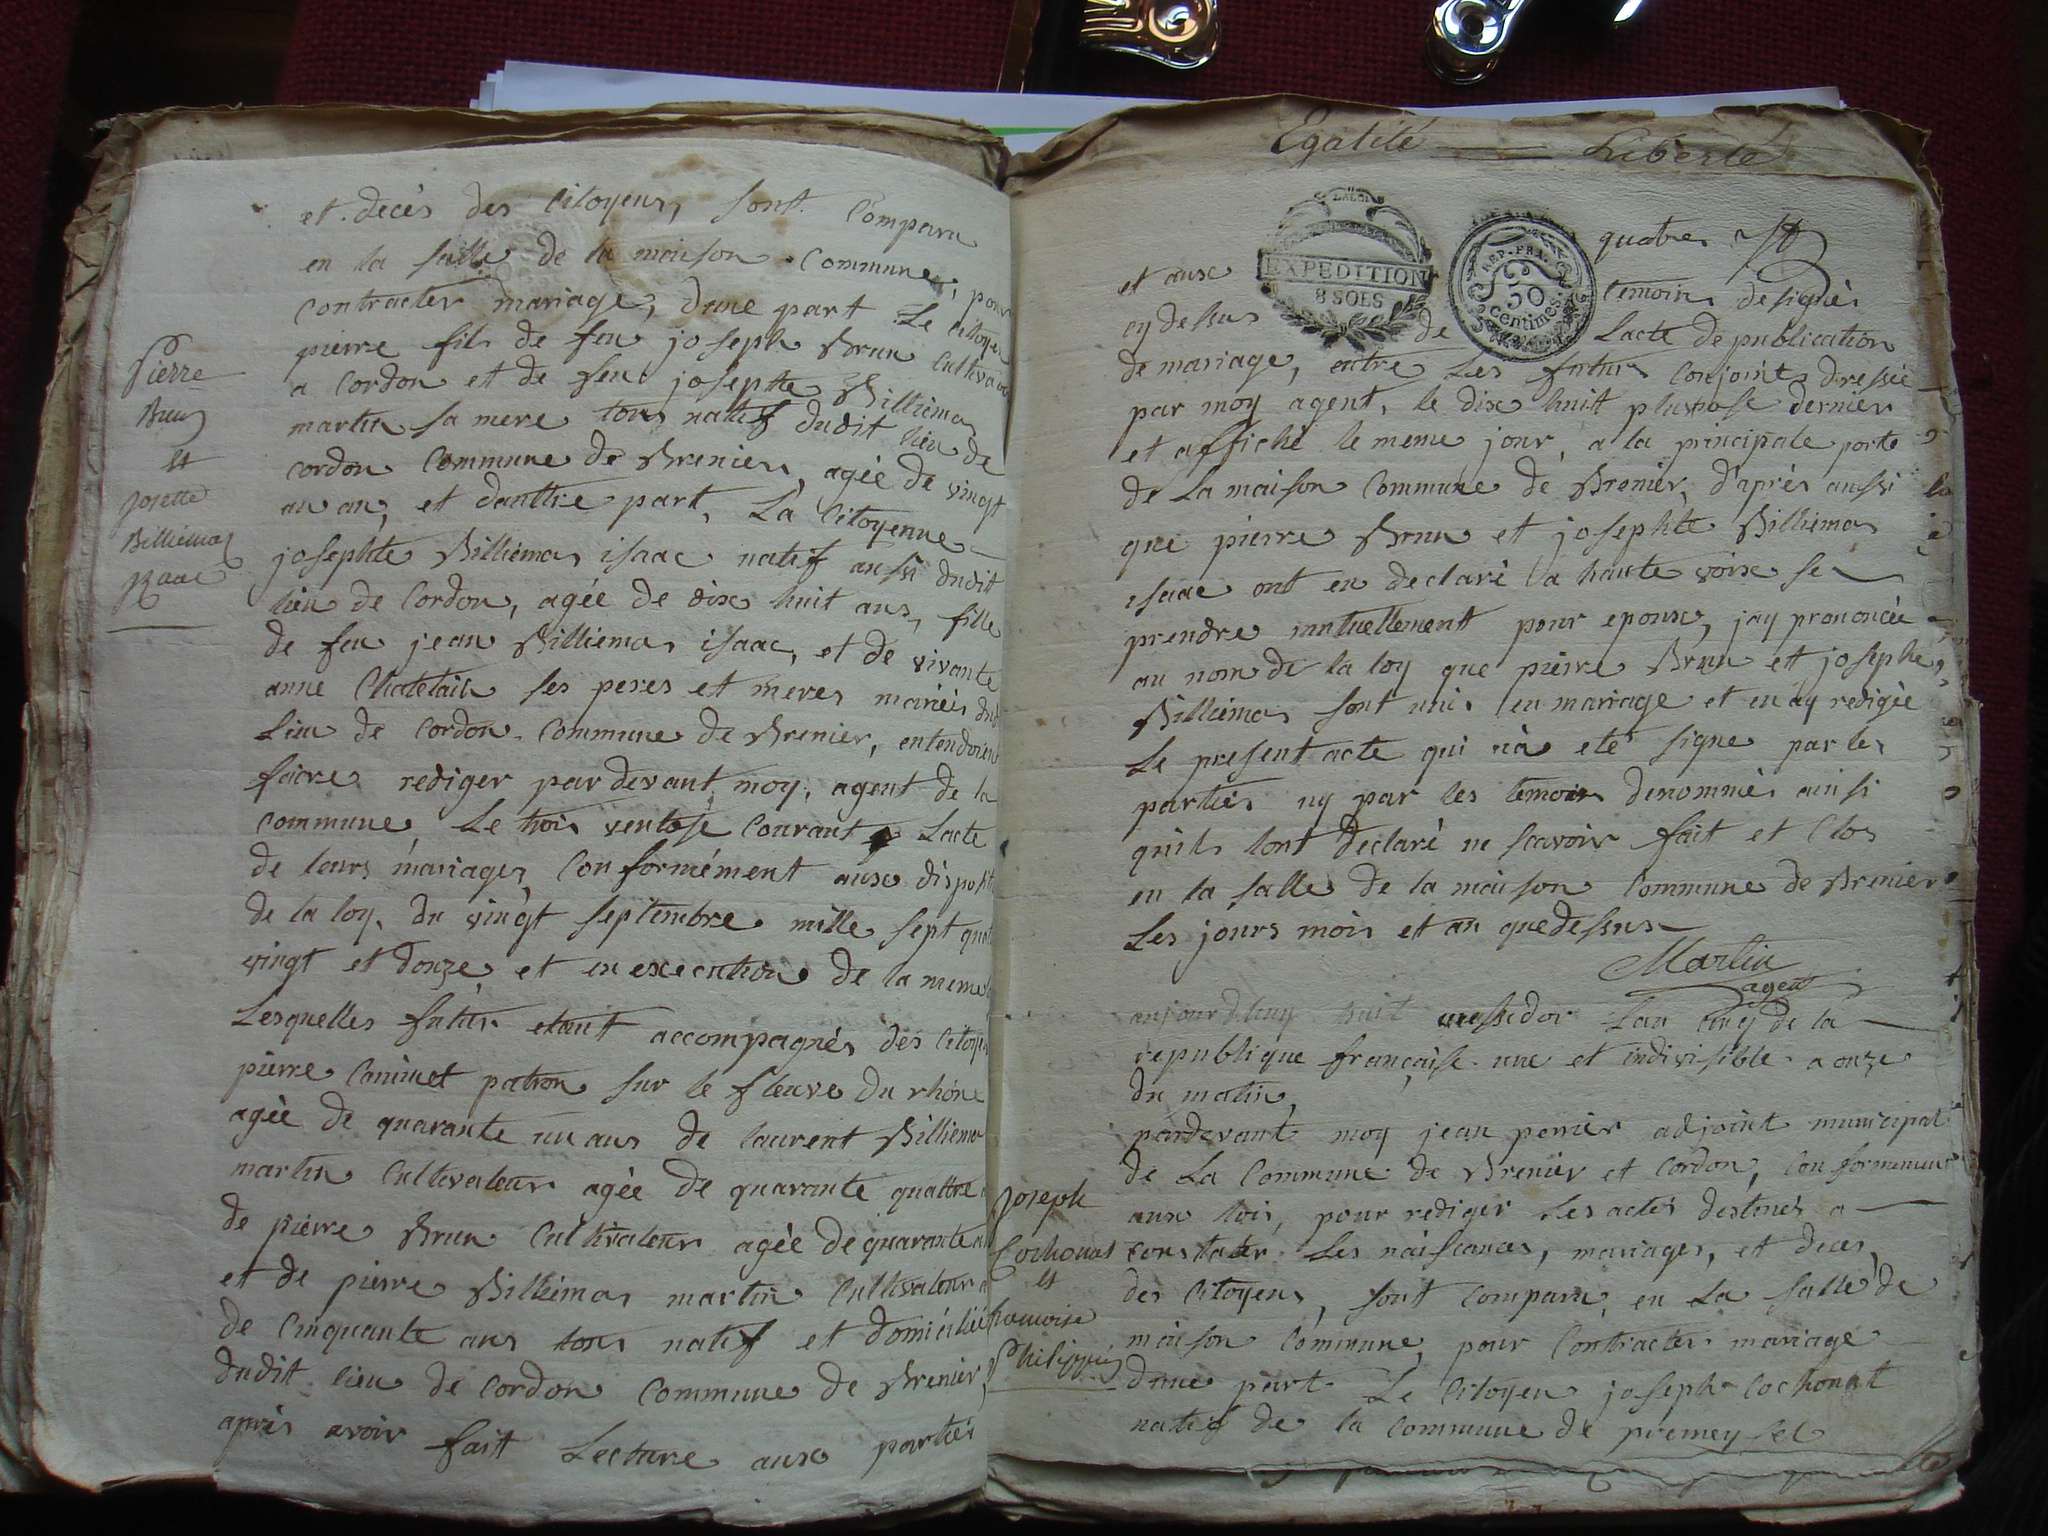 et decès des Citoyens, sont Comparu
en la salle de la maison Commune, pour
contracter mariage, dune part Le Citoyen
pierre fils de feu joseph Brun Cultivateur
a Cordon et de feue josephte Billiemas
martin sa mere tous natif dudit lieu de
cordon Commune de Brenier, agée de vingt
un an, et dautre part, La Citoyenne
josephte Billiemas isaac natif aussi dudit
lieu de Cordon, agée de dix huit ans, fille
de feu jean Billiemas isaac, et de vivante
anne Chatelain ses peres et meres mariés dud
Lieu de Cordon Commune de Brenier, entendoient
faire rediger pardevant moy, agent de la
Commune Le trois ventose Courant Lacte
de leurs mariages, Conformément aux disposit
de la loy du vingt septembre mille sept quat
vingt et douze, et en execution de la meme
Lesquelles futur etant accompagnés des Citoyens
pierre Caninet patron sur le fleuve du rhône
agée de quarante un ans de laurent Billiemas
martin Cultivateur agée de quarante quattre
de pierre Brun Cultivateur agée de quarante
et de pierre Billiemas martin Cultivateur
de Cinquante ans tous natif et domiciliée
dudit lieu de Cordon Commune de Brenier,
après avoir fait Lecture aux parties
Pierre
Brun
et
Josette
Billiemaz
Isaac
Egalité Liberté
LA LOI
EXPEDITION
8 SOLS
REP. FRA.
50
centimes
et aux quatres
temoins designés
cy dessus de Lacte de publication
de mariage, entre Les futurs Conjoints dressé
par moy agent, le dix huit pluviose dernier
et affiché le meme jour, a la principale porte
de La maison Commune de Brenier, d'après aussi
que pierre Brun et josephte Billiemas
isaac ont en declaré a haute voix se
prendre mutuellement pour epoux, jay prononcée
au nom de la loy que pierre Brun et josephte
Billiemas sont unis en mariage et en ay redigée
Le present acte qui n'a eté signe par les
parties ny par les temoins denommés ainsi
quils lont declaré ne scavoir fait et Clos
en la salle de la maison Commune de Brenier
Les jours mois et an que dessus
Martin
agent
aujourdhuy huit messidor Lan cinq de la
republique française une et indivisible a onze
du matin,
pardevant moy jean perrier adjoint municipal
de La Commune de Brenier et Cordon, Conformement
aux lois, pour rediger Les actes destinés a
constater Les naissances, mariages, et deces
des Citoyens, sont Comparu en La salle de
maison Commune, pour Contracter mariage
dune part Le Citoyen joseph Cochonat
natif de la Commune de premeysel
Joseph
Cochonat
et
francoise
Philippe